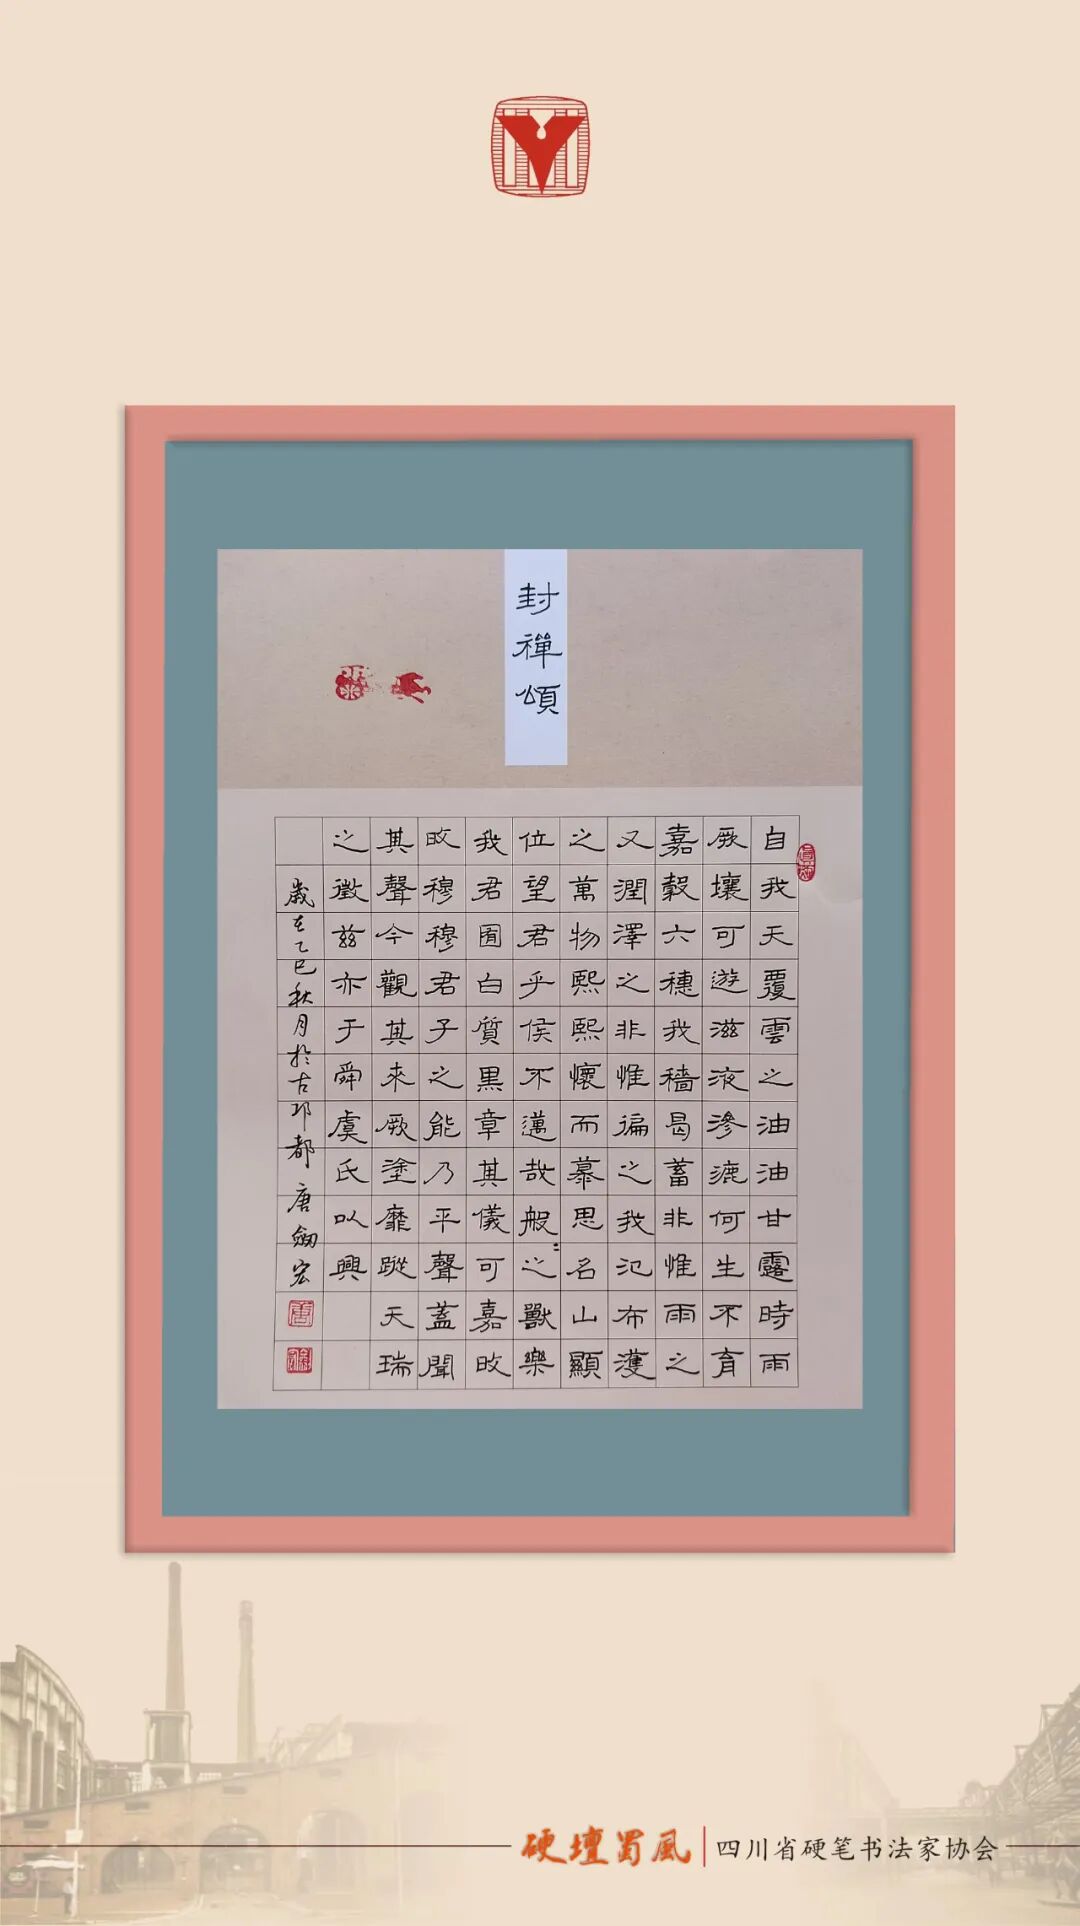 封禪頌
自我天覆雲之油油甘露時雨
厥壤可遊滋液滲漉何生不育
嘉穀六穗我穡曷蓄非惟雨之
又潤澤之非惟徧之我氾布濩
之萬物熙熙懷而慕思名山顯
位望君乎侯不邁哉般之獸樂
我君囿白質黑章其儀可嘉旼
旼穆穆君子之能乃平聲蓋聞
其聲今觀其來厥塗靡蹤天瑞
之徵茲亦于舜虞氏以興
歲在乙巳秋月於古邛都唐劒宏
硬壇蜀風
四川省硬笔书法家协会